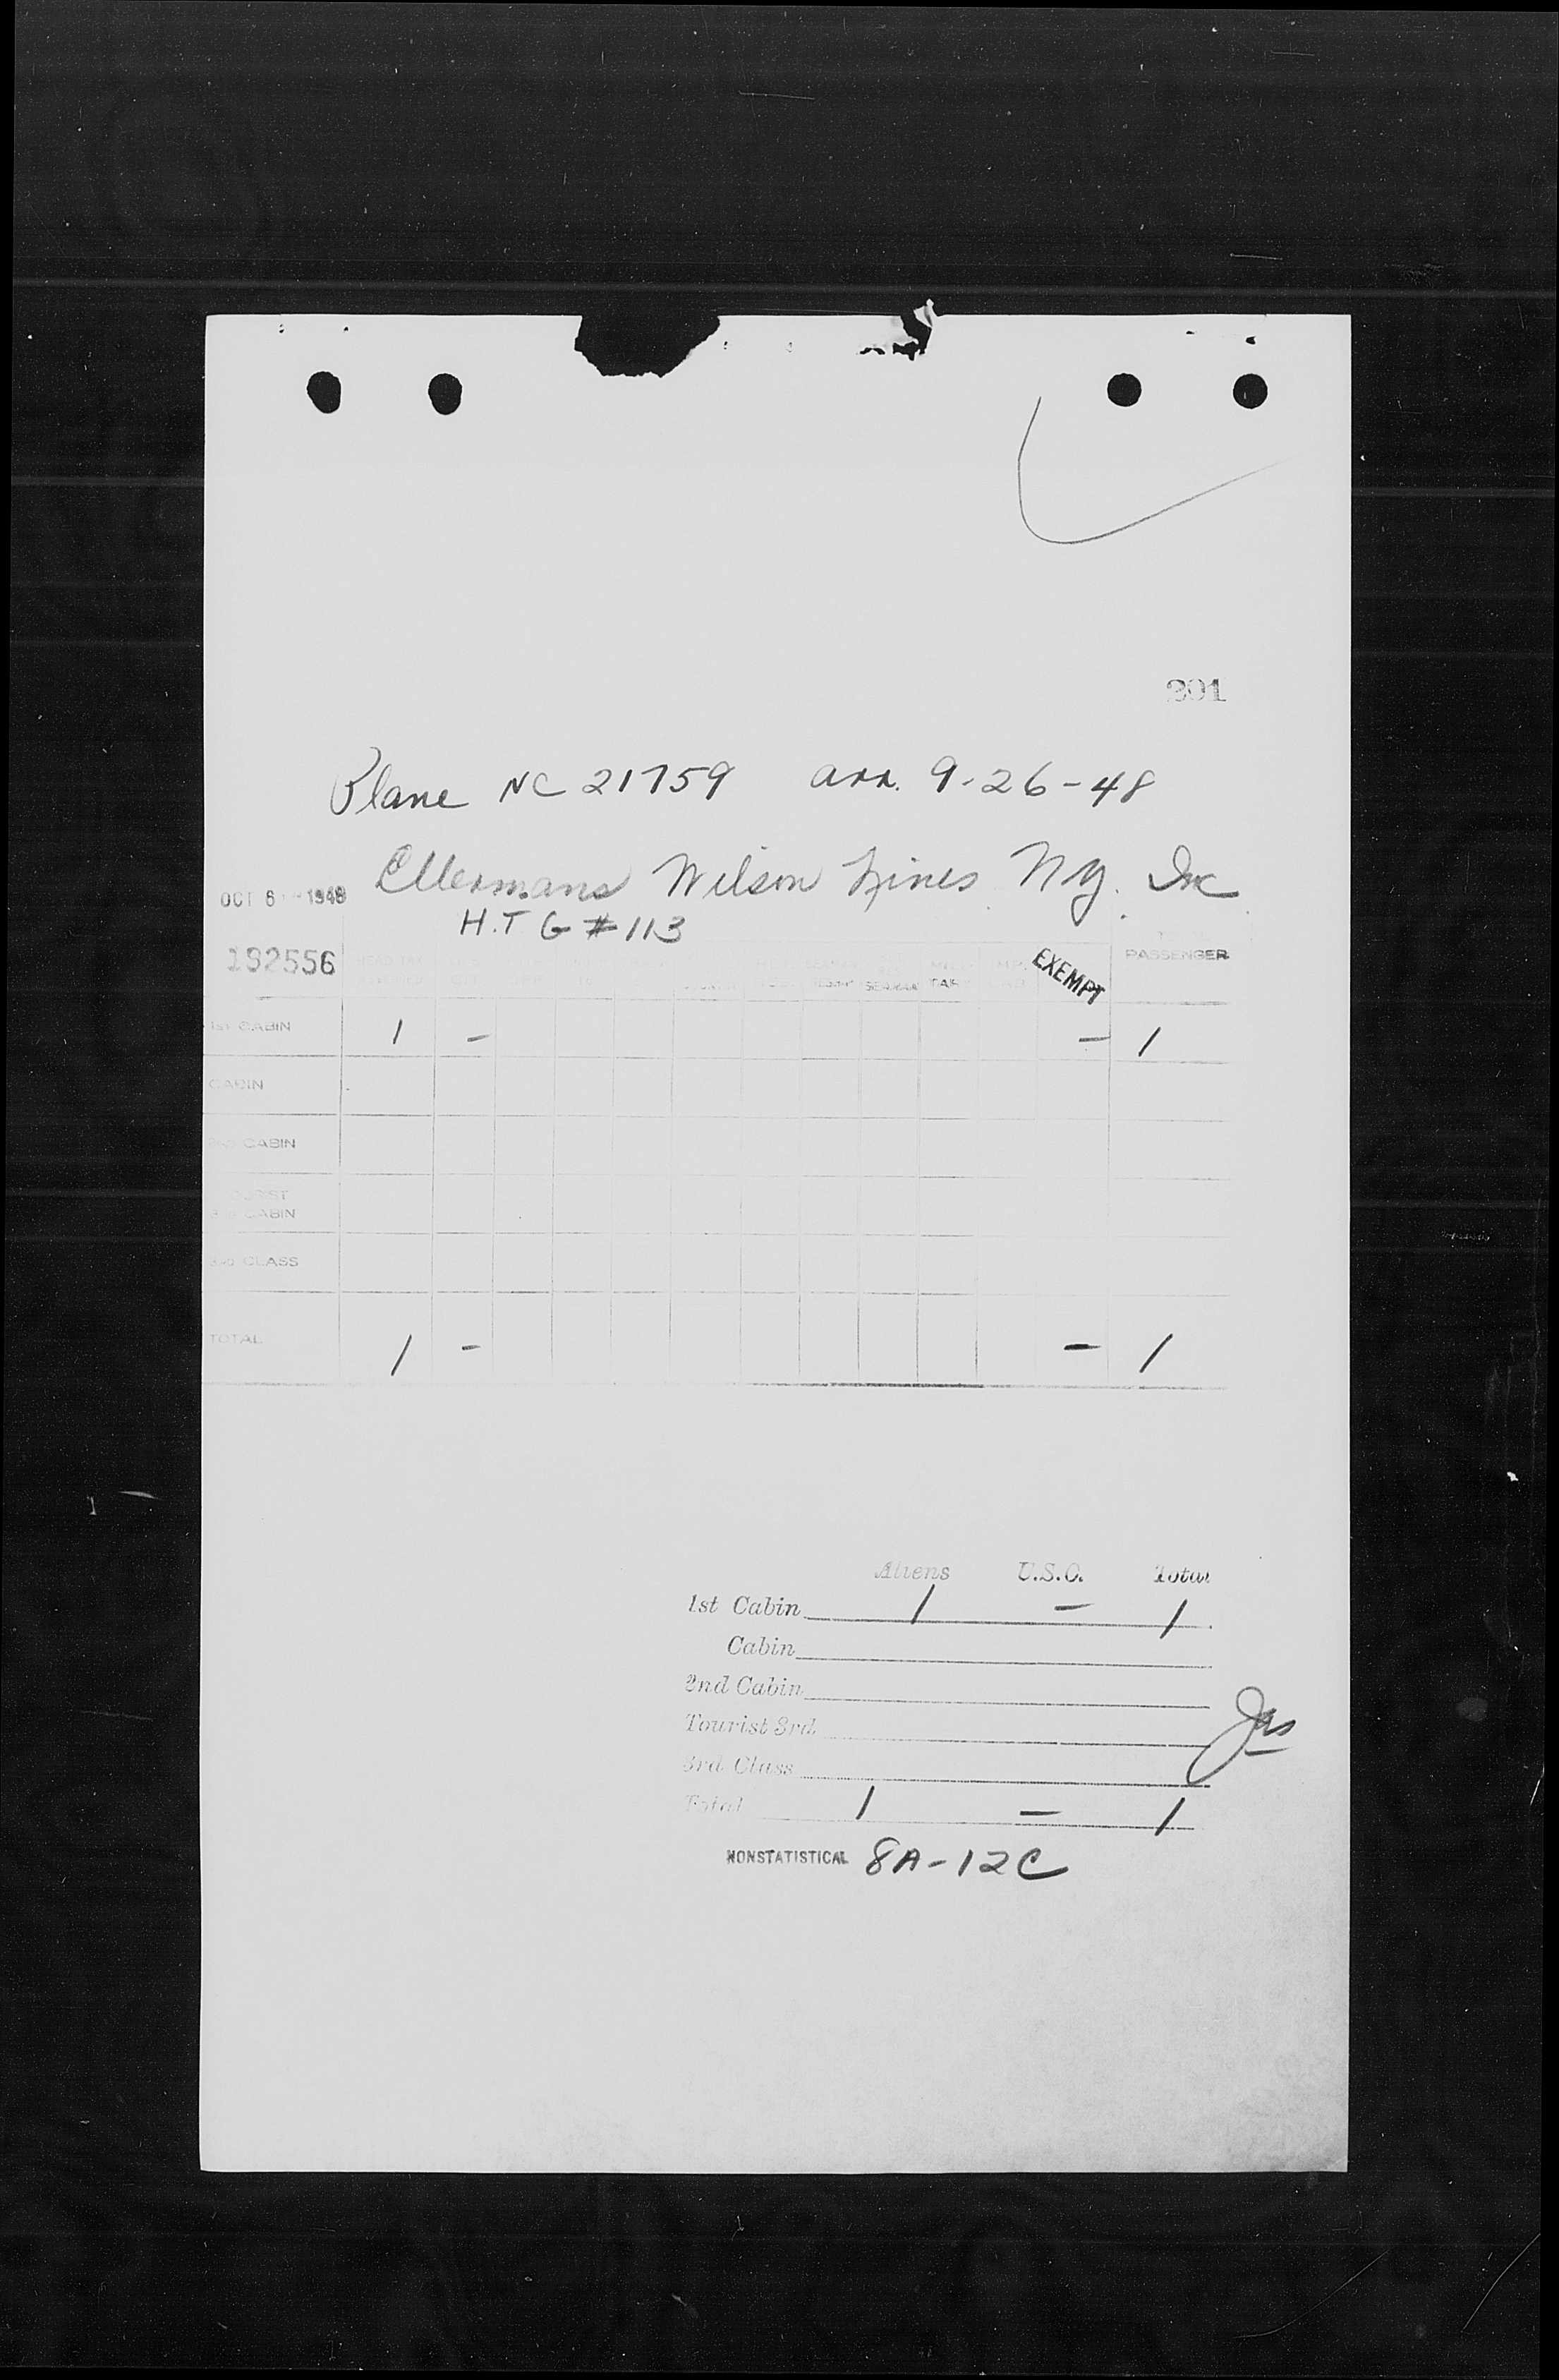 301
Plane NC 21759 arr. 9-26-48
Ellermans Wilson Lines N.Y. Inc
OCT 6 1948
H.T G # 113
192556 EXEMPT PASSENGER
1st CABIN 1 - - 1
CABIN
CABIN
CABIN
3rd CLASS
TOTAL 1 - - 1
Aliens U.S.C. Total
1st Cabin 1 - 1
Cabin
2nd Cabin
Tourist 3rd
3rd Class
Total 1 - 1
NONSTATISTICAL 8A-12C